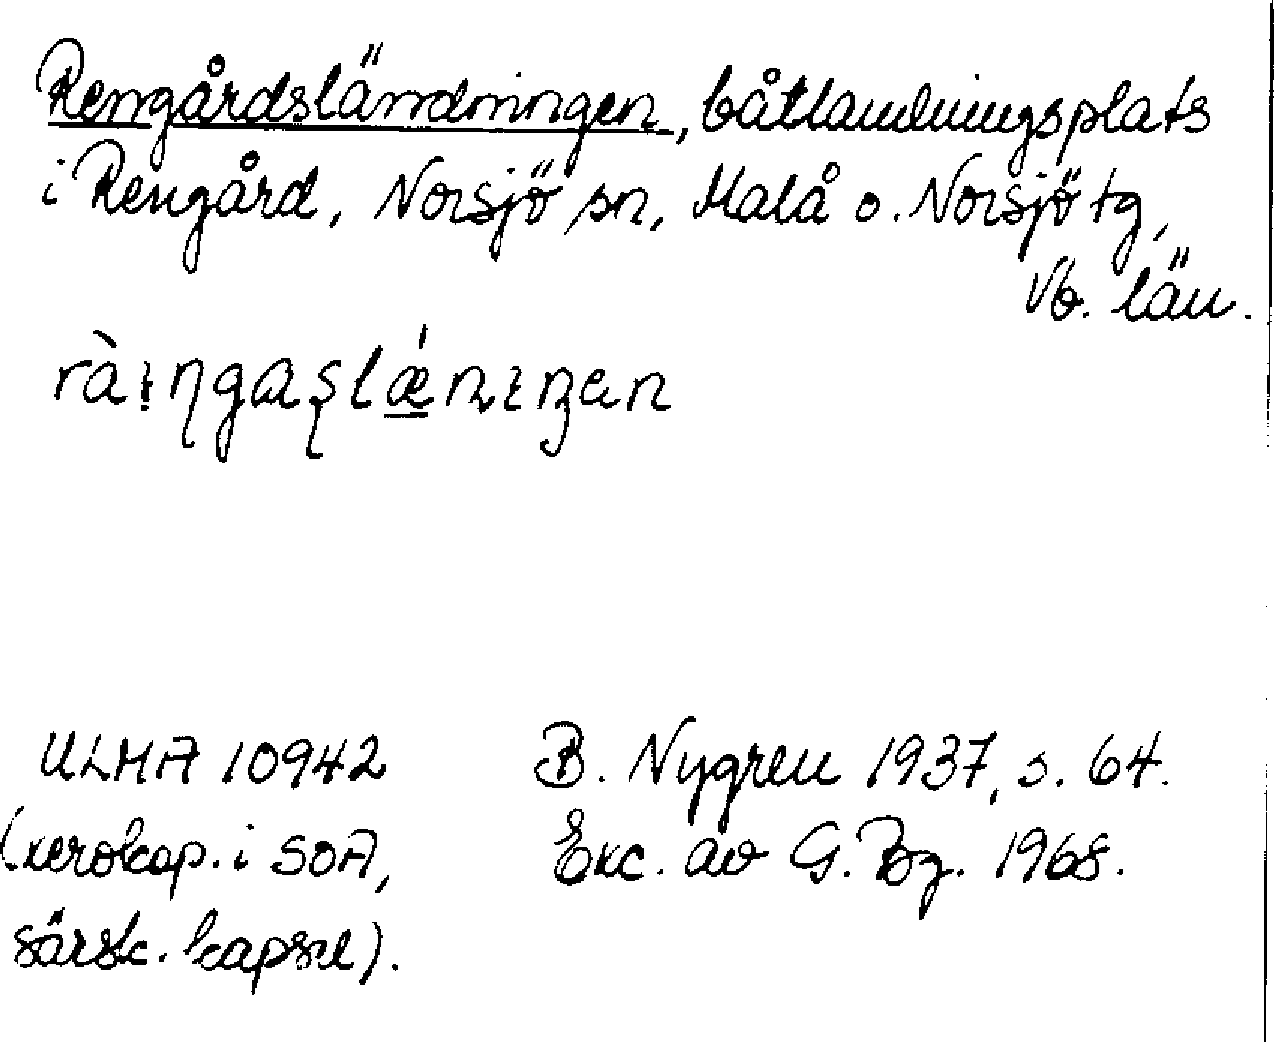 Rengårdsländningen, båtlandningsplats
i Rengård, Norsjö sn, Malå o. Norsjö tg,
Vb. län.
ULMA 10942 B. Nygren 1937, s. 64.
(xerokop. i SOA, Exc. av G. Bg. 1968.
särsk. kapsel).